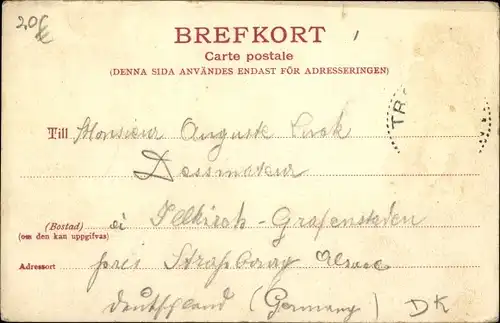 20€
BREFKORT
Carte postale
(DENNA SIDA ANVÄNDES ENDAST FÖR ADRESSERINGEN)
TR
Till Monsieur Auguste
Dessinateur
(Bostad) Illkirch-Grafenstaden
(om den kan uppgifvas)
Adressort près Straßbourg Alsace
Deutschland (Germany) DK